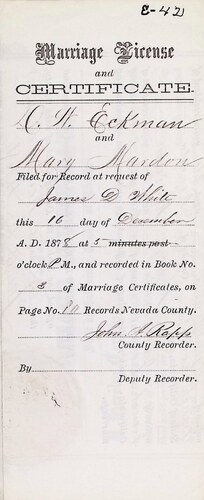 E-42
Marriage License
and
CERTIFICATE.
O. H. Eckman
and
Mary Mardon
Filed for Record at request of
James D White
this 16 day of December
A. D. 1878 at 5 minutes past
o'clock P M., and recorded in Book No.
3 of Marriage Certificates, on
Page No. 70 Records Nevada County.
John A Rapp
County Recorder.
By
Deputy Recorder.